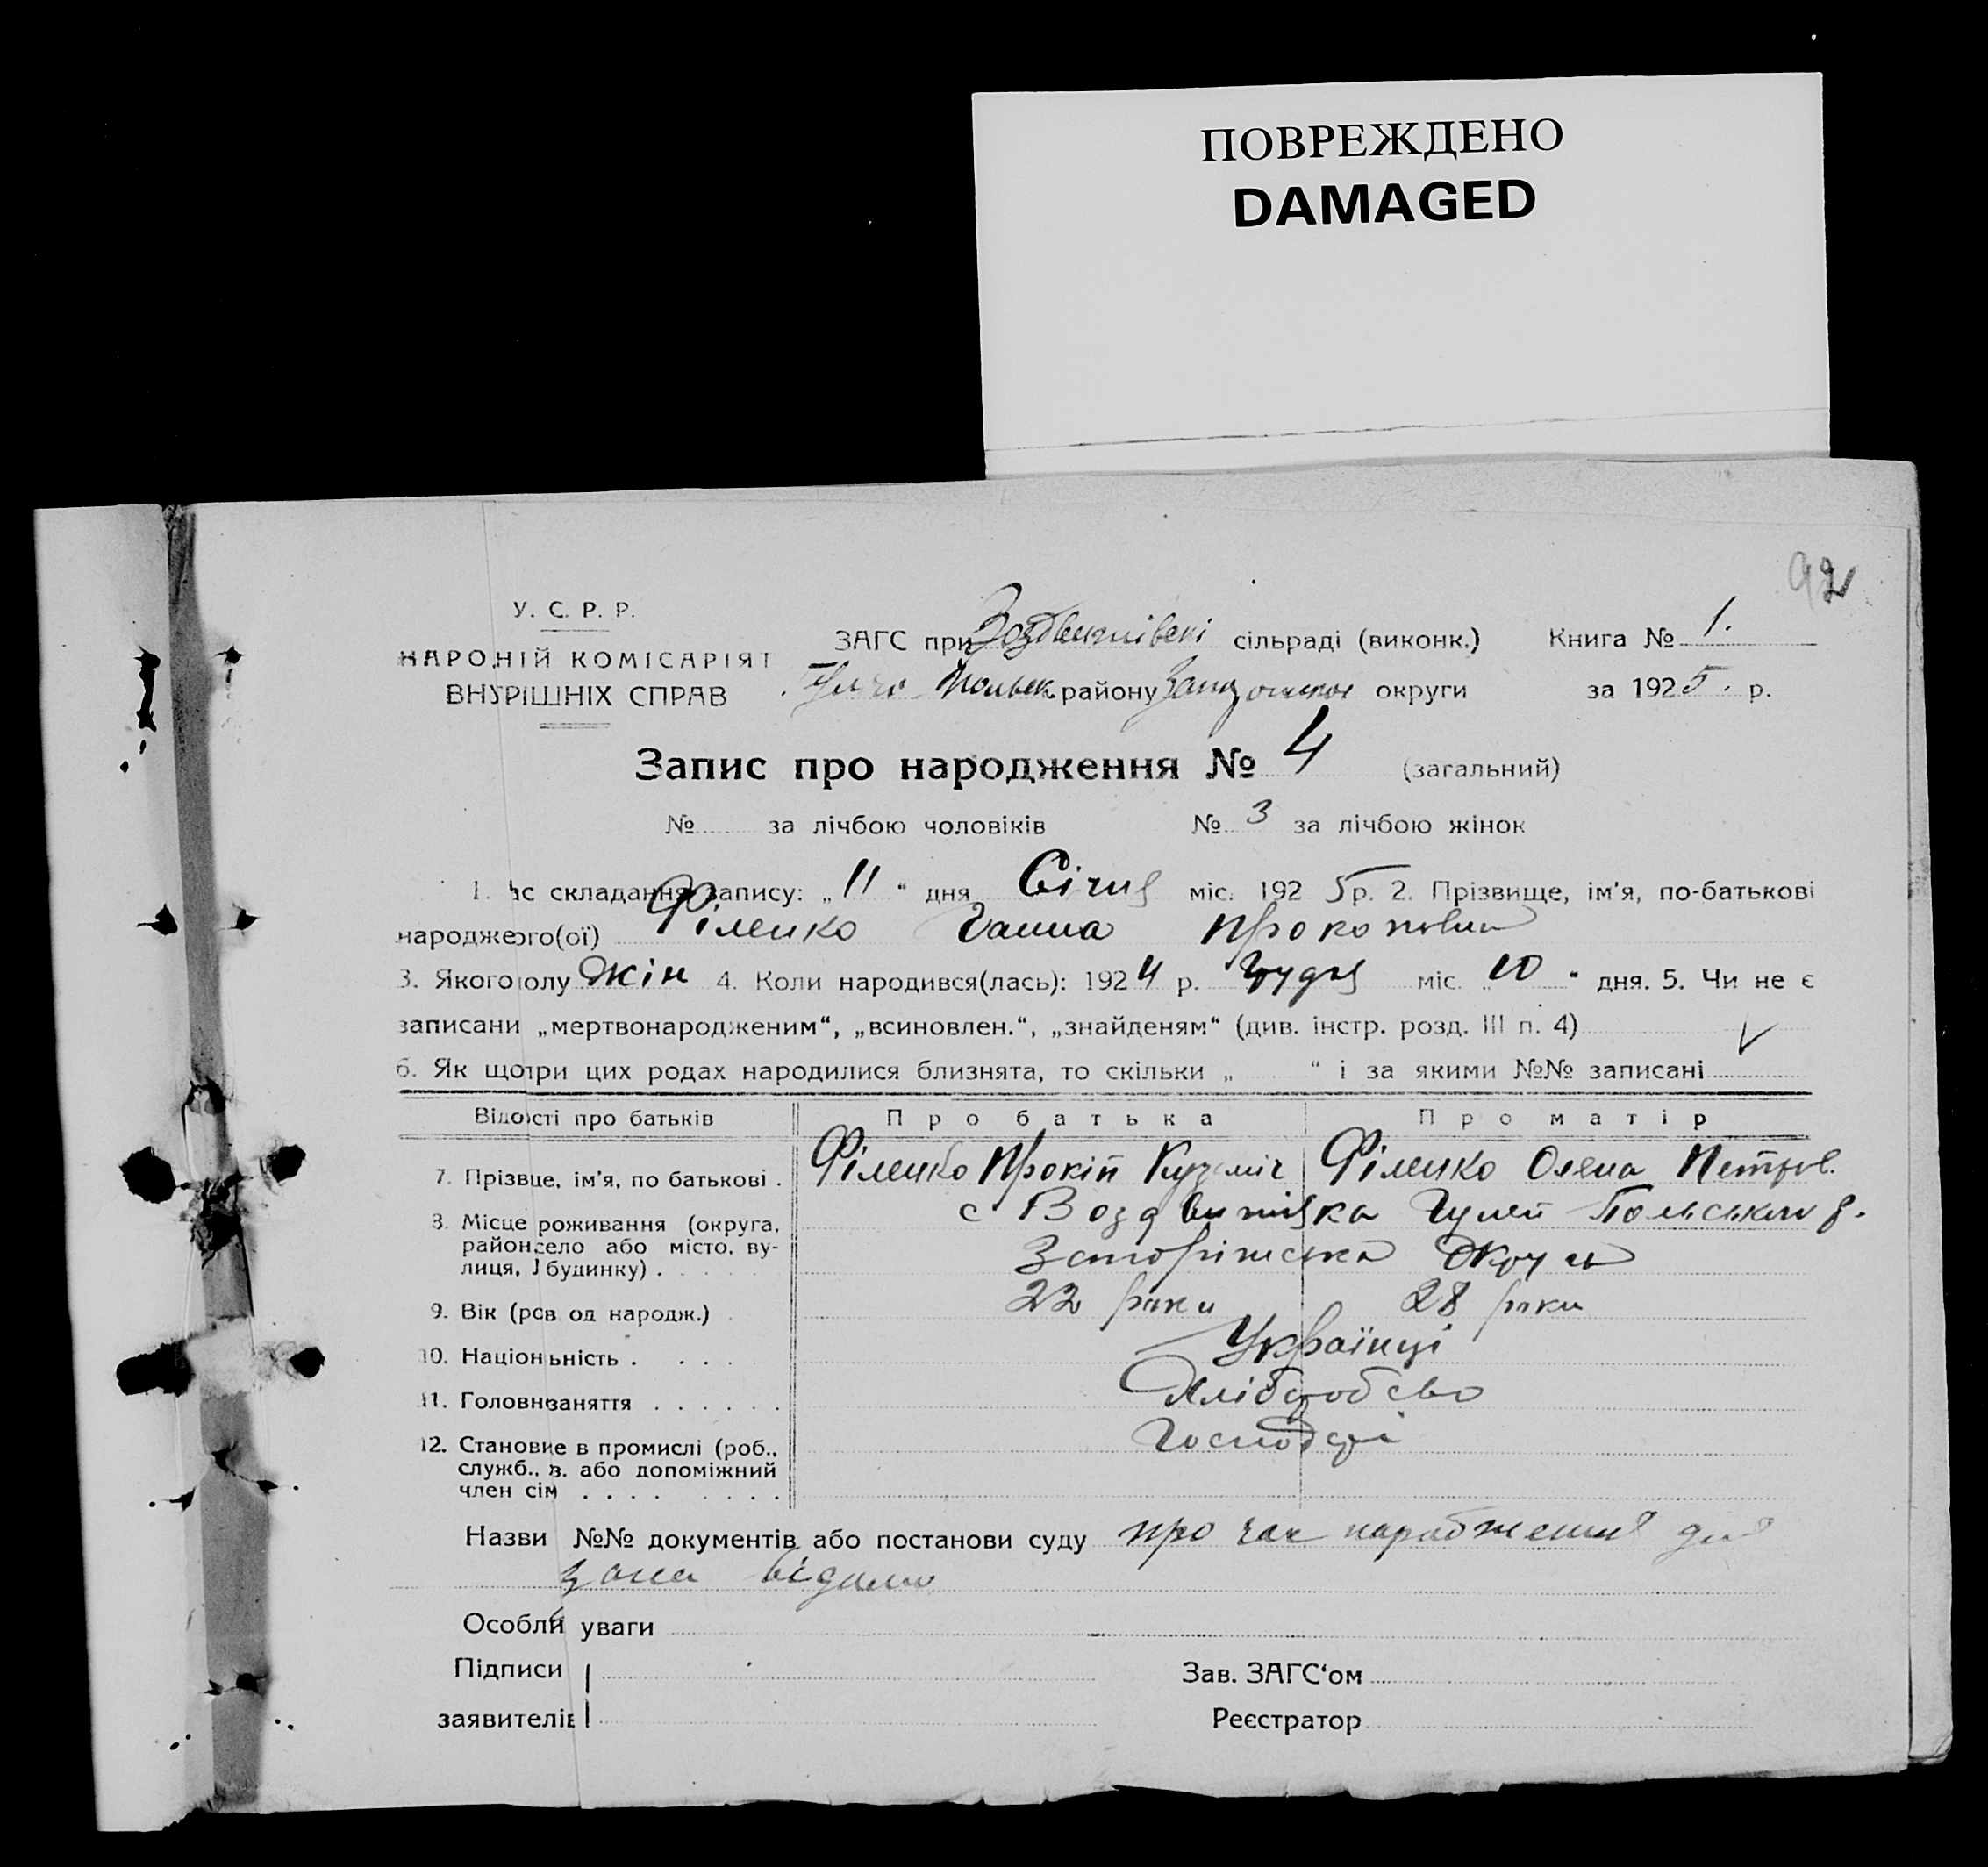 ПОВРЕЖДЕНО
DAMAGED
92
У. С. Р. Р.
НАРОНІЙ КОМІСАРІЯТ
ВНУРІШНІХ СПРАВ
ЗАГС при сільраді (виконк.) Книга № 1.
району округи за 1925. р.
Запис про народження № 4 (загальний)
№ за лічбою чоловіків № 3 за лічбою жінок
1. ас складання запису: „ 11 “ дня Січня міс. 192 5 р. 2. Прізвище, ім'я, по-батькові
народжего(ої) Філенко Ганна
3. Якого олу жін 4. Коли народився(лась): 1924 р. Грудня міс. „ 10 “ дня. 5. Чи не є
записани „мертвонародженим“, „всиновлен.“, „знайденям“ (див. інстр. розд. III п. 4)
6. Як що при цих родах народилися близнята, то скільки „ “ і за якими №№ записані
Відості про батьків Про батька Про матір
7. Прізвще, ім'я, по батькові . Філенко Прокіп Кузьміч Філенко Олена Петров.
8. Місце роживання (округа, с Воздвижівка Гуляй Польського р.
район, село або місто, ву-
лиця, будинку) . Запоріжська Округа
9. Вік (рсв од народж.) 22 роки 28 роки
10. Націонльність . . . . Українці
11. Головнезаняття . . . . . . Хліборобство
12. Становие в промислі (роб., Господарі
служб., в. або допоміжний
член сім . . . . . . . .
Назви №№ документів або постанови суду про час народження
Особли уваги
Підписи Зав. ЗАГС‘ом
заявителів Реєстратор